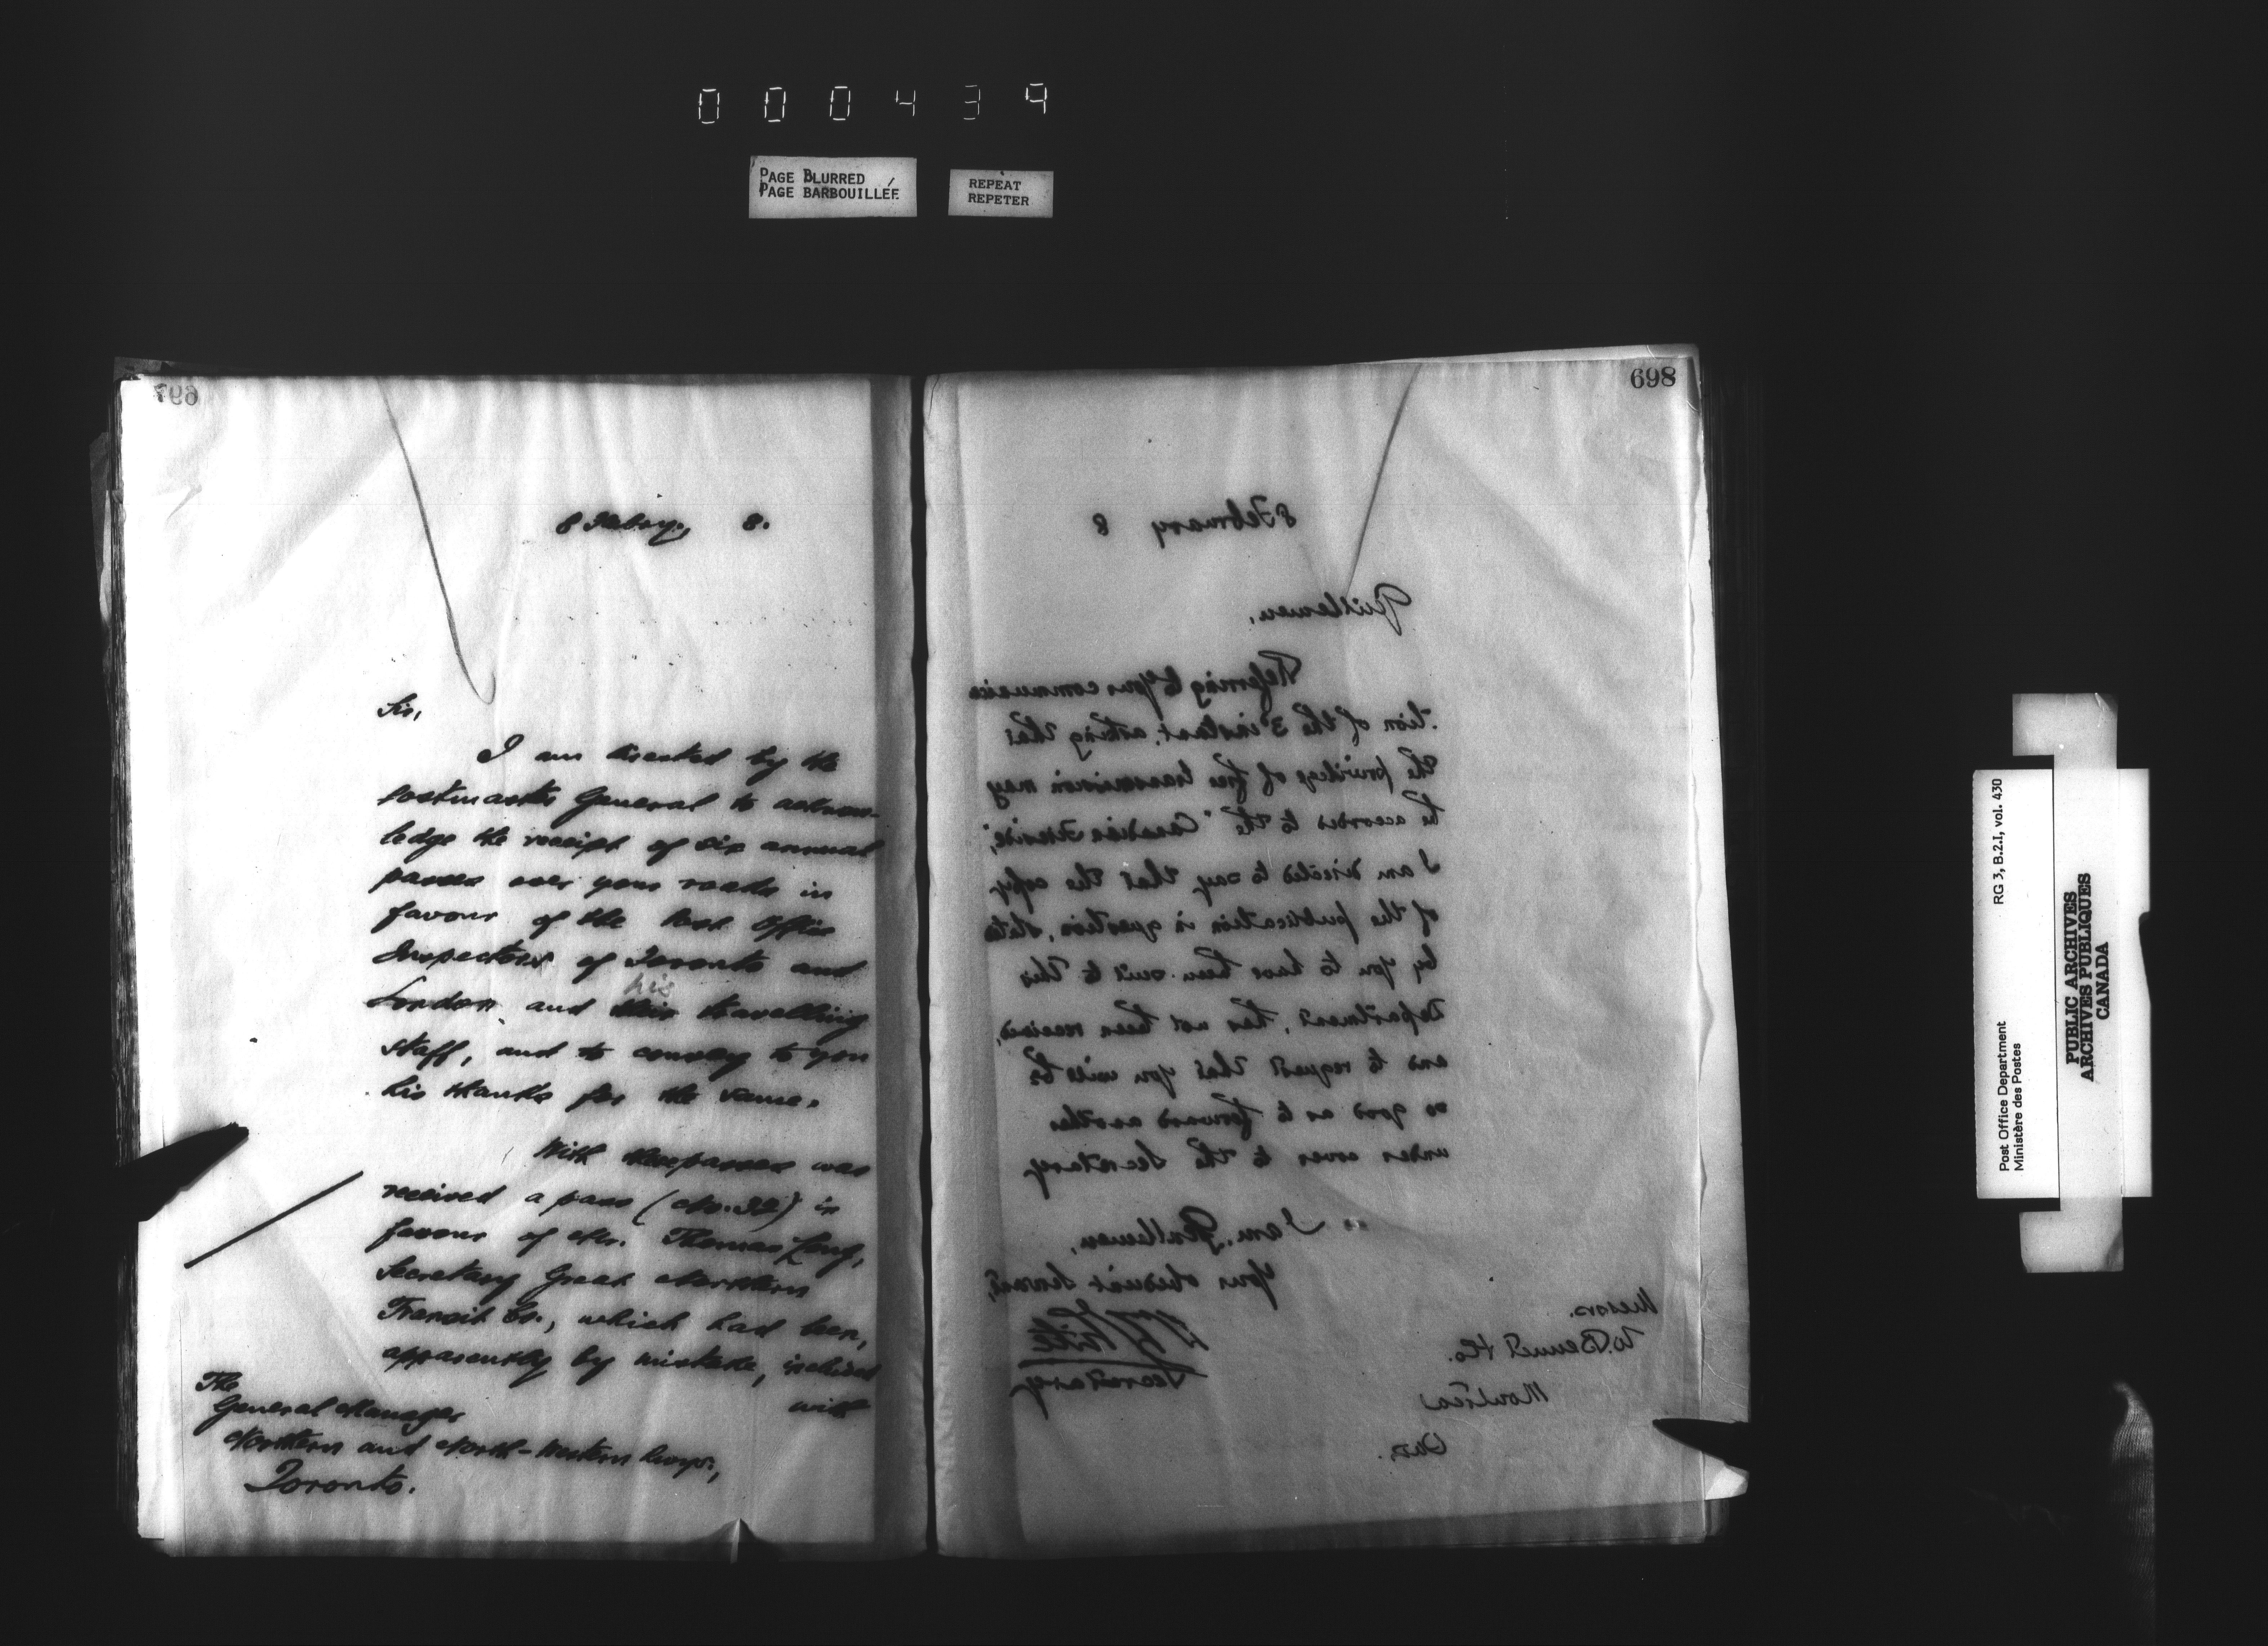 000439
PAGE BLURRED
PAGE BARBOUILLÉE
REPEAT
REPETER
697
8 Febry., 8.
Sir,
I am directed by the
Postmaster General to acknow-
ledge the receipt of six annual
passes over your roads in
favour of the Post Office
Inspectors of Toronto and
London and his travelling
staff, and to convey to you
his thanks for the same.
With these passes was
received a pass (No. 32) in
favour of Mr. Thomas Long,
Secretary Great Northern
Transit Co., which had been,
apparently by mistake, inclosed
with
The
General Manager
Northern and North-Western Rwys.,
Toronto.
698
8 February 8
Gentlemen,
Referring to your communica
-tion of the 3d instant, asking that
the privilege of free transmission may
be accorded to the "Canadian
I am directed to say that the copy
of the publication in question, stated
by you to have been sent to this
Department, has not been received,
and to request that you will be
so good as to forward another
under cover to the Secretary
I am, Gentlemen,
Your obedient Servant,
Secretary
Messrs.
W. Bennet & Co.
Montreal
Post Office Department
Ministère des Postes
RG 3, B.2.I, vol. 430
PUBLIC ARCHIVES
ARCHIVES PUBLIQUES
CANADA